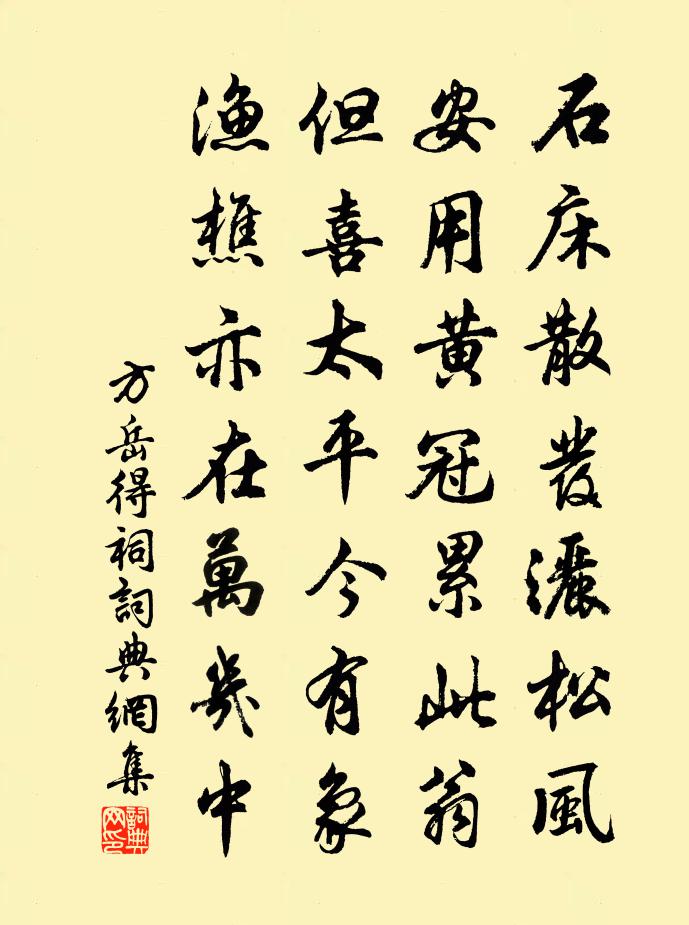 石床散發灑松風
安用黃冠累此翁
但喜太平今有象
漁樵亦在萬幾中
方岳得祠詞典網集
詞典網印